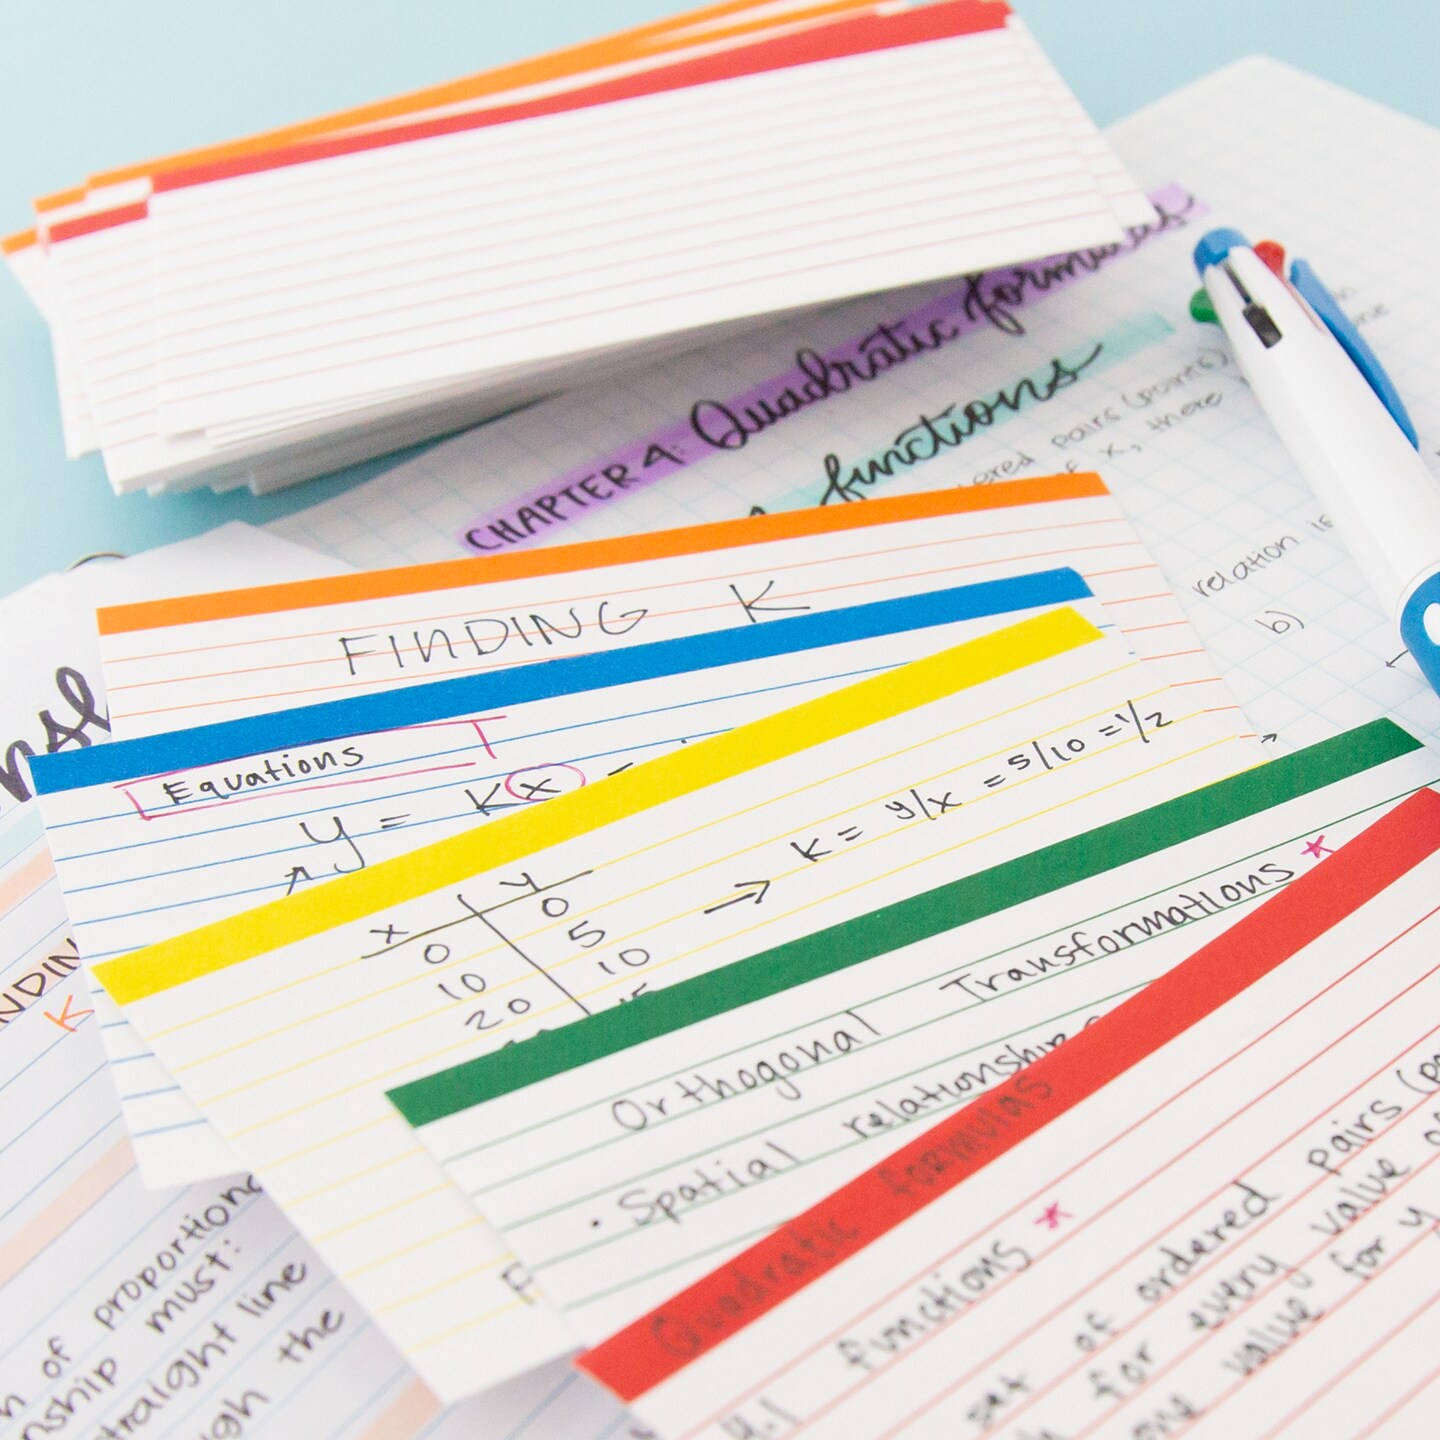 CHAPTER 4: Quadratic formulas
functions
ordered pairs (points)
of x, there
relation is
b)
FINDING K
Equations
y = Kx -
x y
0 0
10 5
20 10
15
→ K = y/x = 5/10 = 1/2
Orthogonal Transformations *
• Spatial relationships
Quadratic formulas
4.1 functions *
set of ordered pairs
for every value of
one value for y
K
of proportional
must:
straight line
the